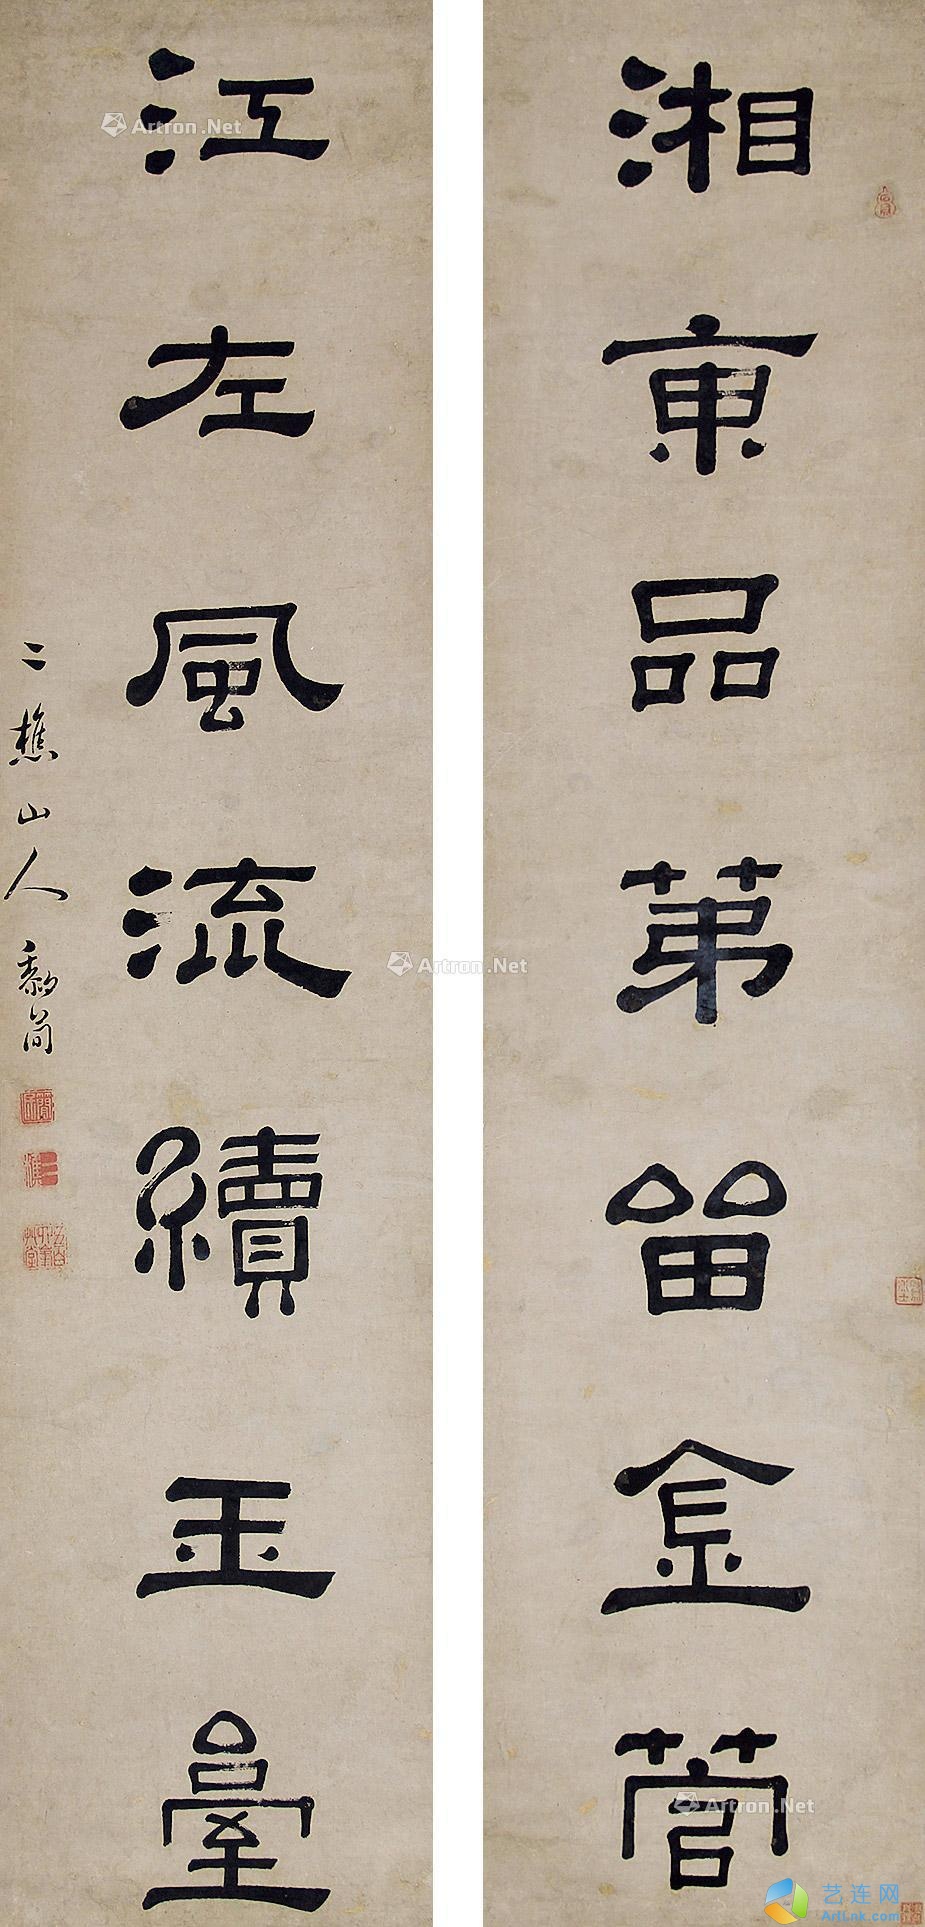 湘東品第留金管
江左風流續玉臺
二樵山人黎简
Artron.Net
Artron.Net
Artron.Net
艺连网
ArtLnk.com